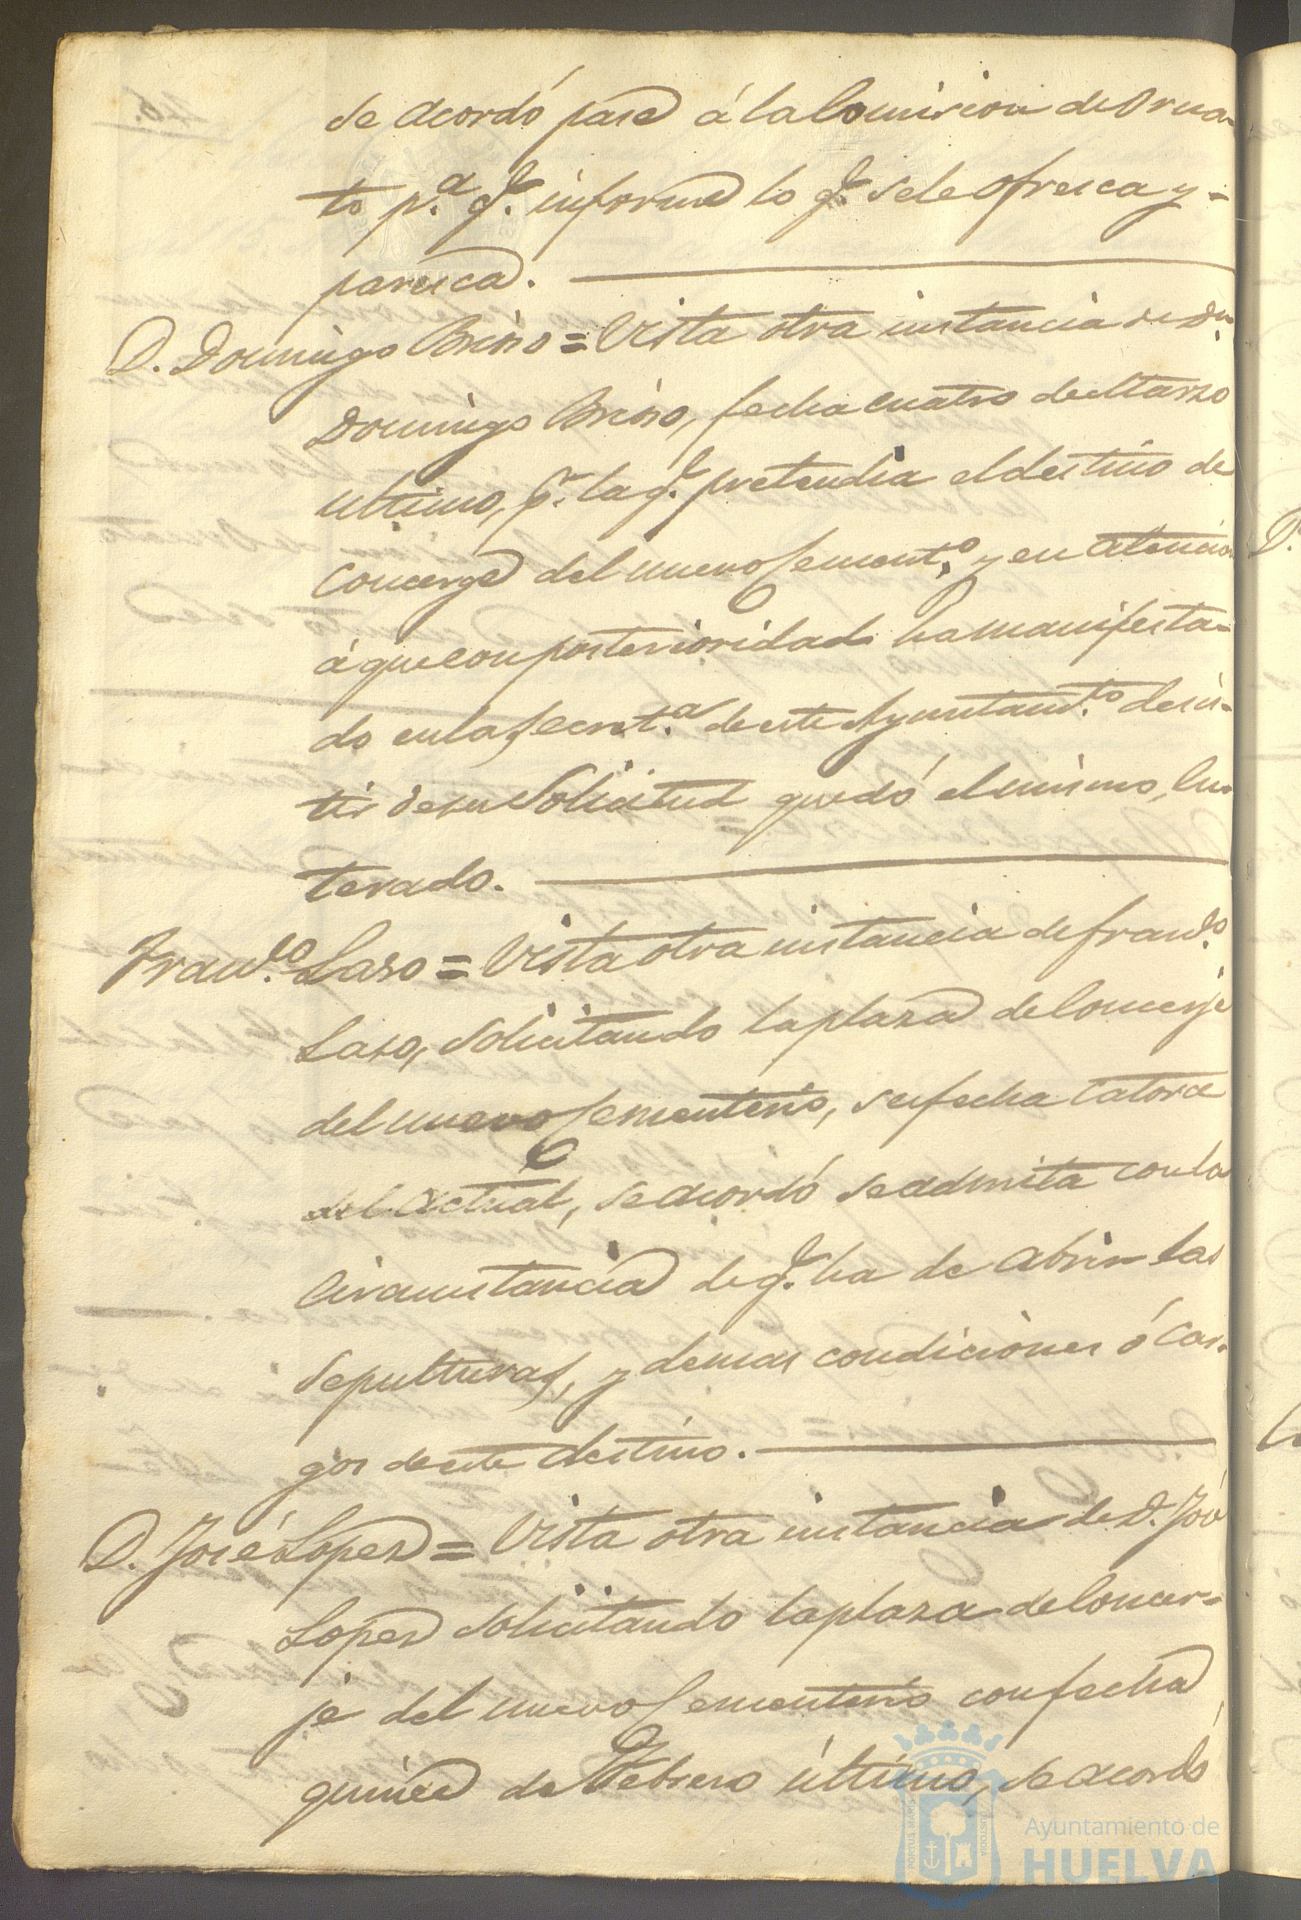 se acordó pase á la Comision de Orna-
to p.ª q.e informe lo q.e se le ofresca y-
paresca.
D. Domingo Brioso = Vista otra instancia de Dn.
Domingo Brioso, fecha cuatro de Marzo
ultimo, p.r la q.e pretendia el destino de
Concerge del nuevo Sement.o, y en atencion
á que con posterioridad ha manifesta-
do en la Secret.ª de este Ayuntam.to desis-
tir de su Solicitud quedó el mismo, En-
terado.
Fran.co Laso = Vista otra instancia de Fran.co
Laso, solicitando la plaza de Conserje
del nuevo Sementerio, su fecha Catorce
del actual, se acordó se admita con la
Circunstancia de q.e ha de abrir las
Sepulturas, y demas condiciones ó Car-
gos de este destino.
D. José Lopez = Vista otra instancia de D. José
Lopez solicitando la plaza de Concer-
je del nuevo Sementerio con fecha
quince de Febrero último, se acordó
Ayuntamiento de
HUELVA